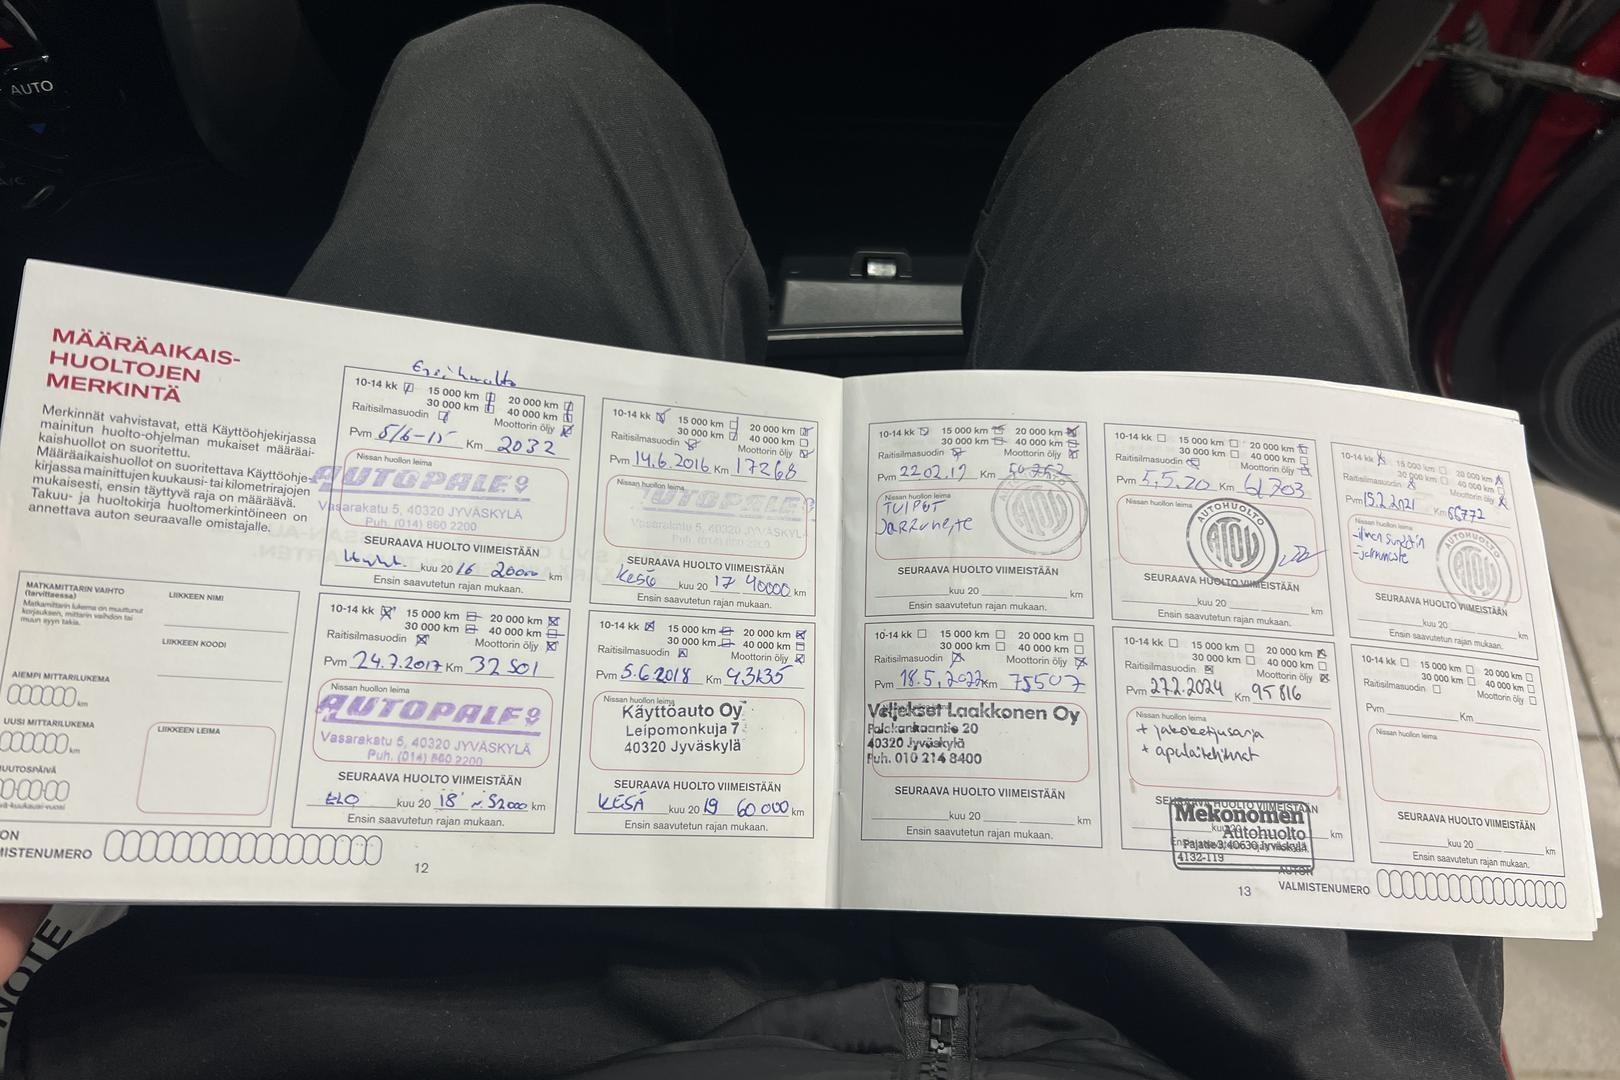 AUTO
A/C
MÄÄRÄAIKAIS-
HUOLTOJEN
MERKINTÄ
Merkinnät vahvistavat, että Käyttöohjekirjassa
mainitun huolto-ohjelman mukaiset määräai-
kaishuollot on suoritettu.
Määräaikaishuollot on suoritettava Käyttöohje-
kirjassa mainittujen kuukausi- tai kilometrirajojen
mukaisesti, ensin täyttyvä raja on määräävä.
Takuu- ja huoltokirja huoltomerkintöineen on
annettava auton seuraavalle omistajalle.
MATKAMITTARIN VAIHTO
(tarvittaessa)
Matkamittarin lukema on muuttunut
korjauksen, mittarin vaihdon tai
muun syyn takia.
LIIKKEEN NIMI
LIIKKEEN KOODI
AIEMPI MITTARILUKEMA
km
UUSI MITTARILUKEMA
km
MUUTOSPÄIVÄ
LIIKKEEN LEIMA
Ensihuolto
10-14 kk 15 000 km 20 000 km
30 000 km 40 000 km
Raitisilmasuodin Moottorin öljy
Pvm 5/6-15 Km 2032
Nissan huollon leima
AUTOPALE
Vasarakatu 5, 40320 JYVÄSKYLÄ
Puh. (014) 860 2200
SEURAAVA HUOLTO VIIMEISTÄÄN
kuu 20 16 20000 km
Ensin saavutetun rajan mukaan.
10-14 kk 15 000 km 20 000 km
30 000 km 40 000 km
Raitisilmasuodin Moottorin öljy
Pvm 14.6.2016 Km 17268
Nissan huollon leima
AUTOPALE
Vasarakatu 5, 40320 JYVÄSKYLÄ
SEURAAVA HUOLTO VIIMEISTÄÄN
Kesä kuu 20 17 40000 km
Ensin saavutetun rajan mukaan.
10-14 kk 15 000 km 20 000 km
30 000 km 40 000 km
Raitisilmasuodin Moottorin öljy
Pvm 24.7.2017 Km 32501
Nissan huollon leima
AUTOPALE
Vasarakatu 5, 40320 JYVÄSKYLÄ
Puh. (014) 860 2200
SEURAAVA HUOLTO VIIMEISTÄÄN
ELO kuu 20 18 n. 52000 km
Ensin saavutetun rajan mukaan.
10-14 kk 15 000 km 20 000 km
30 000 km 40 000 km
Raitisilmasuodin Moottorin öljy
Pvm 5.6.2018 Km 43135
Nissan huollon leima
Käyttöauto Oy
Leipomonkuja 7
40320 Jyväskylä
SEURAAVA HUOLTO VIIMEISTÄÄN
KESÄ kuu 20 19 60 000 km
Ensin saavutetun rajan mukaan.
12
10-14 kk 15 000 km 20 000 km
30 000 km 40 000 km
Raitisilmasuodin Moottorin öljy
Pvm 22.02.19 Km 50.752
Nissan huollon leima
TULPAT
Jarruneste
SEURAAVA HUOLTO VIIMEISTÄÄN
kuu 20 km
Ensin saavutetun rajan mukaan.
10-14 kk 15 000 km 20 000 km
30 000 km 40 000 km
Raitisilmasuodin Moottorin öljy
Pvm 5.5.20 Km 61.703
Nissan huollon leima
AUTOHUOLTO
ATOY
SEURAAVA HUOLTO VIIMEISTÄÄN
kuu 20 km
Ensin saavutetun rajan mukaan.
10-14 kk 15 000 km 20 000 km
30 000 km 40 000 km
Raitisilmasuodin Moottorin öljy
Pvm 15.2.2021 Km 66772
Nissan huollon leima
-ilman suodatin
-jarruneste
AUTOHUOLTO
ATOY
SEURAAVA HUOLTO VIIMEISTÄÄN
kuu 20 km
Ensin saavutetun rajan mukaan.
10-14 kk 15 000 km 20 000 km
30 000 km 40 000 km
Raitisilmasuodin Moottorin öljy
Pvm 18.5.2022 Km 75507
Veljekset Laakkonen Oy
Palokankaantie 20
40320 Jyväskylä
Puh. 010 214 8400
SEURAAVA HUOLTO VIIMEISTÄÄN
kuu 20 km
Ensin saavutetun rajan mukaan.
10-14 kk 15 000 km 20 000 km
30 000 km 40 000 km
Raitisilmasuodin Moottorin öljy
Pvm 27.2.2024 Km 95816
Nissan huollon leima
+ jakoketjusarja
+ apulaitehihnat
SEURAAVA HUOLTO VIIMEISTÄÄN
Mekonomen
Autohuolto
Pajatie 3, 40630 Jyväskylä
4132-119
km
10-14 kk 15 000 km 20 000 km
30 000 km 40 000 km
Raitisilmasuodin Moottorin öljy
Pvm Km
Nissan huollon leima
SEURAAVA HUOLTO VIIMEISTÄÄN
kuu 20 km
Ensin saavutetun rajan mukaan.
13
AUTON
VALMISTENUMERO
NOTE